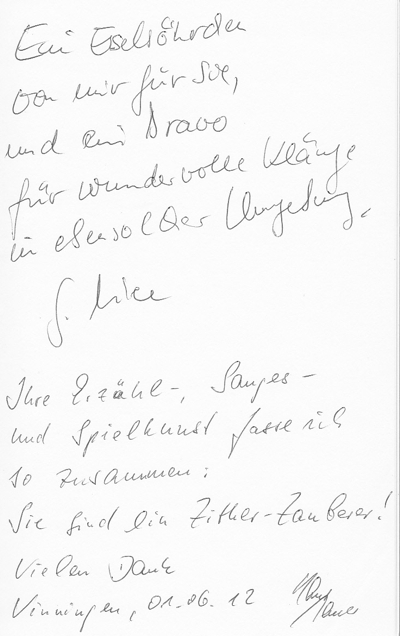 Ein Eselsöhrchen
von mir für Sie,
und ein Bravo
für wundervolle Klänge
in ebensolcher Umgebung.
G.
Ihre Erzähl-, Sanges-
und Spielkunst fasse ich
so zusammen:
Sie sind ein Zither-Zauberer!
Vielen Dank
Vinningen, 01.06.12